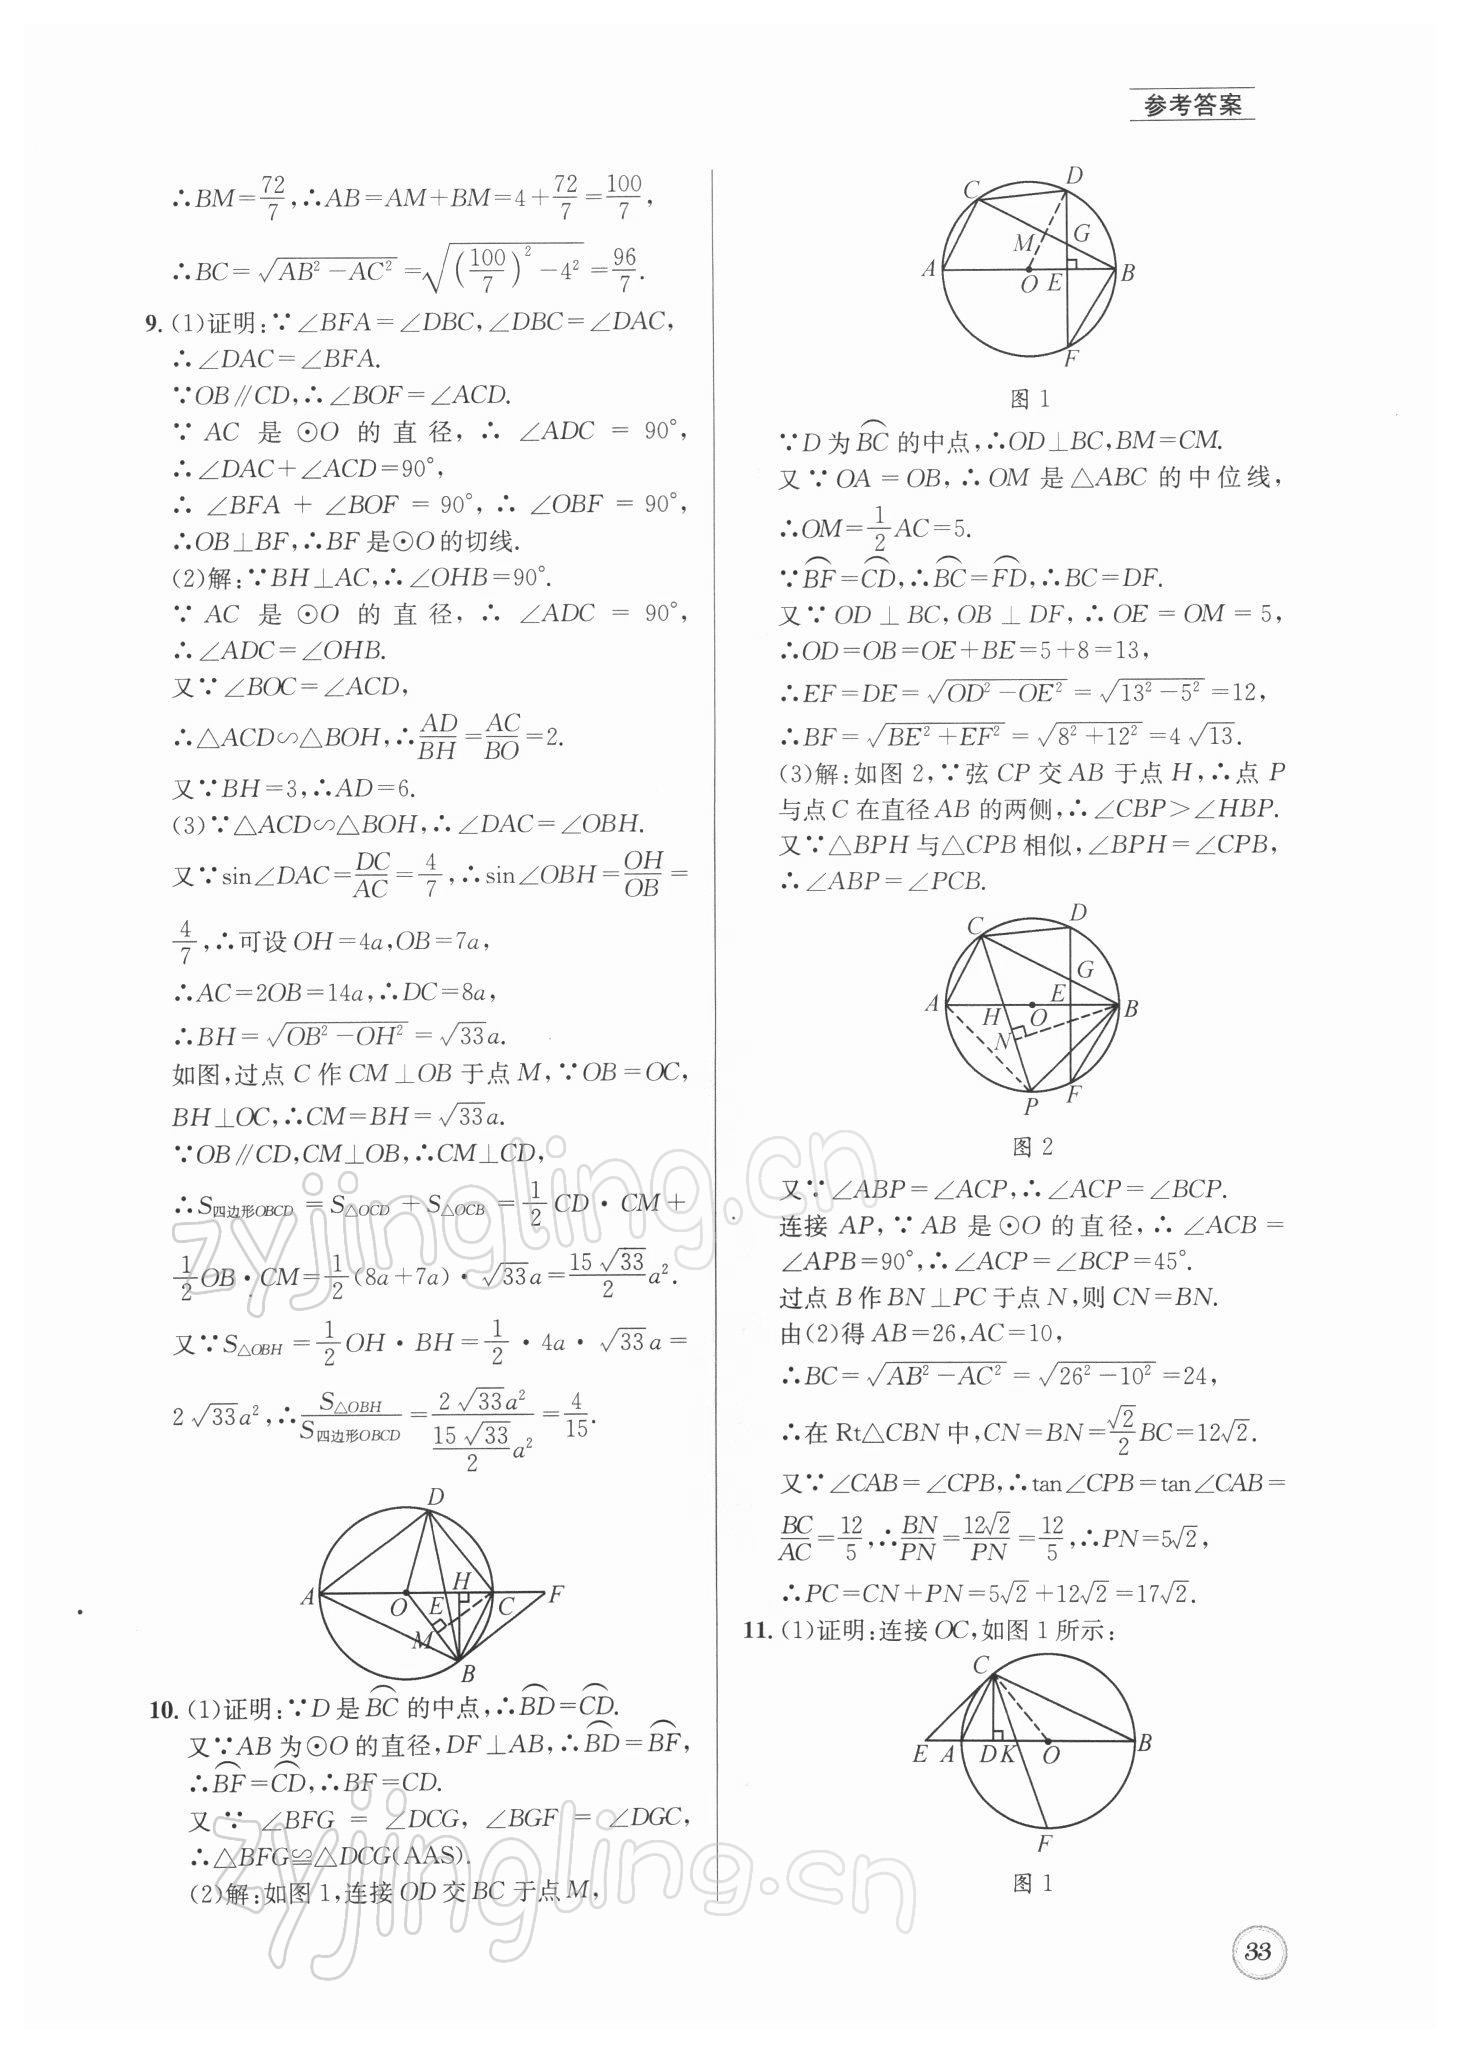 参考答案
∴BM=72/7,∴AB=AM+BM=4+72/7=100/7,
∴BC=√(AB²−AC²)=√((100/7)²−4²)=96/7.
9. (1)证明:∵∠BFA=∠DBC,∠DBC=∠DAC,
∴∠DAC=∠BFA.
∵OB∥CD,∴∠BOF=∠ACD.
∵AC是⊙O的直径,∴∠ADC=90°,
∴∠DAC+∠ACD=90°,
∴∠BFA+∠BOF=90°,∴∠OBF=90°,
∴OB⊥BF,∴BF是⊙O的切线.
(2)解:∵BH⊥AC,∴∠OHB=90°.
∵AC是⊙O的直径,∴∠ADC=90°,
∴∠ADC=∠OHB.
又∵∠BOC=∠ACD,
∴△ACD∽△BOH,∴AD/BH=AC/BO=2.
又∵BH=3,∴AD=6.
(3)∵△ACD∽△BOH,∴∠DAC=∠OBH.
又∵sin∠DAC=DC/AC=4/7,∴sin∠OBH=OH/OB=
4/7,∴可设OH=4a,OB=7a,
∴AC=2OB=14a,∴DC=8a,
∴BH=√(OB²−OH²)=√33a.
如图,过点C作CM⊥OB于点M,∵OB=OC,
BH⊥OC,∴CM=BH=√33a.
∵OB∥CD,CM⊥OB,∴CM⊥CD,
∴S四边形OBCD=S△OCD+S△OCB=1/2CD·CM+
1/2OB·CM=1/2(8a+7a)·√33a=15√33/2a².
又∵S△OBH=1/2OH·BH=1/2·4a·√33a=
2√33a²,∴S△OBH/S四边形OBCD=2√33a²/(15√33/2a²)=4/15.
D
A O E H C F
M
B
10. (1)证明:∵D是B͡C的中点,∴B͡D=C͡D.
又∵AB为⊙O的直径,DF⊥AB,∴B͡D=B͡F,
∴B͡F=C͡D,∴BF=CD.
又∵∠BFG=∠DCG,∠BGF=∠DGC,
∴△BFG≌△DCG(AAS).
(2)解:如图1,连接OD交BC于点M,
C D
M G
A O E B
F
图1
∵D为B͡C的中点,∴OD⊥BC,BM=CM.
又∵OA=OB,∴OM是△ABC的中位线,
∴OM=1/2AC=5.
∵B͡F=C͡D,∴B͡C=F͡D,∴BC=DF.
又∵OD⊥BC,OB⊥DF,∴OE=OM=5,
∴OD=OB=OE+BE=5+8=13,
∴EF=DE=√(OD²−OE²)=√(13²−5²)=12,
∴BF=√(BE²+EF²)=√(8²+12²)=4√13.
(3)解:如图2,∵弦CP交AB于点H,∴点P
与点C在直径AB的两侧,∴∠CBP>∠HBP.
又∵△BPH与△CPB相似,∠BPH=∠CPB,
∴∠ABP=∠PCB.
C D
G
A H O E B
N
P F
图2
又∵∠ABP=∠ACP,∴∠ACP=∠BCP.
连接AP,∵AB是⊙O的直径,∴∠ACB=
∠APB=90°,∴∠ACP=∠BCP=45°.
过点B作BN⊥PC于点N,则CN=BN.
由(2)得AB=26,AC=10,
∴BC=√(AB²−AC²)=√(26²−10²)=24,
∴在Rt△CBN中,CN=BN=√2/2BC=12√2.
又∵∠CAB=∠CPB,∴tan∠CPB=tan∠CAB=
BC/AC=12/5,∴BN/PN=12√2/PN=12/5,∴PN=5√2,
∴PC=CN+PN=5√2+12√2=17√2.
11. (1)证明:连接OC,如图1所示:
C
E A D K O B
F
图1
33
zyjingling.cn
zyjingling.cn